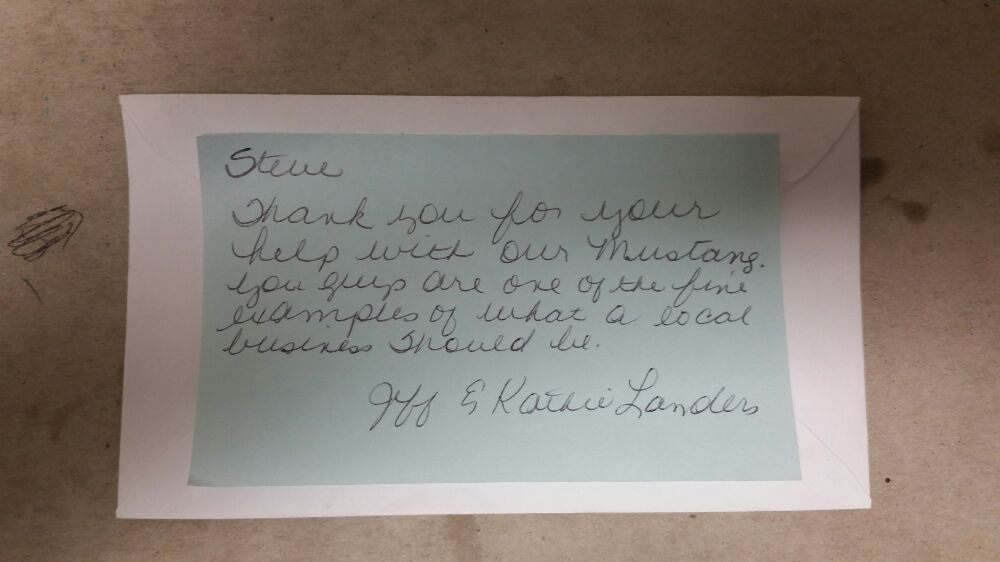 Steve
Thank you for your
help with our Mustang.
you guys are one of the fine
examples of what a local
business should be.
Jeff & Kathie Landers